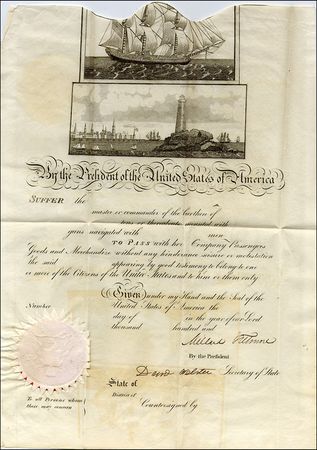 By the President of the United States of America
SUFFER the
master or commander of the burthen of
tons or thereabouts mounted with
guns navigated with men
TO PASS with her Company Passengers
Goods and Merchandize without any hinderance seisure or molestation
the said appearing by good testimony to belong to one
or more of the Citizens of the United States and to him or them only
Given under my Hand and the Seal of the
Number United States of America the
day of in the year of our Lord
thousand hundred and
Millard Fillmore
By the President
Danl Webster Secretary of State
State of
District of
To all Persons whom
these may concern
Countersigned by